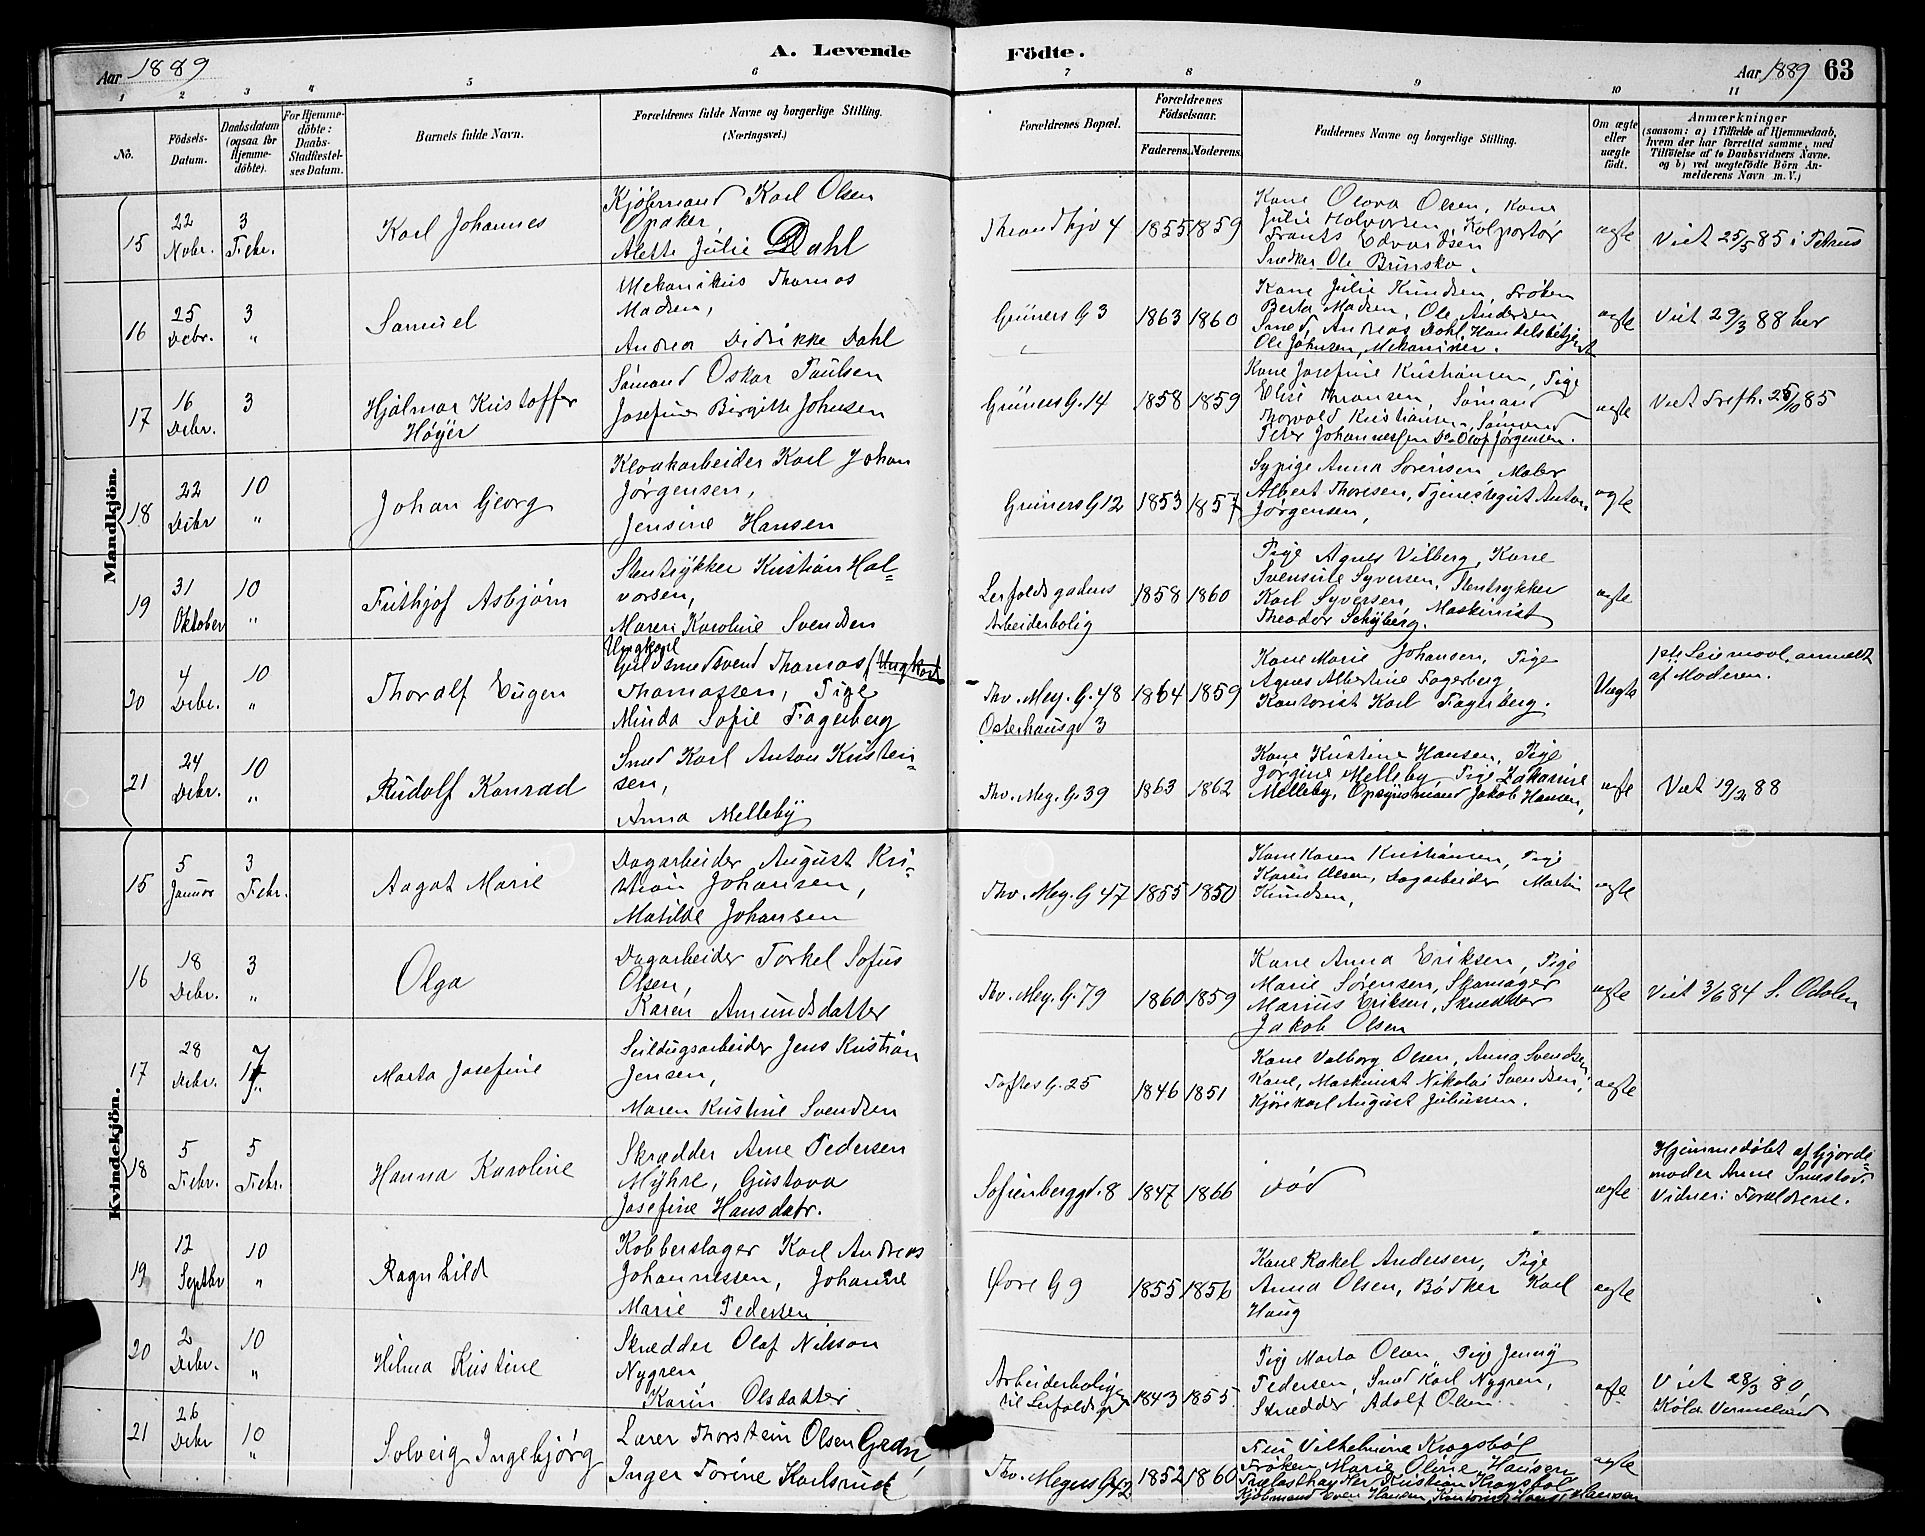 A. Levende Födte.
Aar 1889
Aar 1889 63
1 2 3 4 5 6 7 8 9 10 11
No.
Födsels-
Datum.
Daabsdatum
(ogsaa for
Hjemme-
döbte).
For Hjemme-
döbte:
Daabs-
Stadfæstel-
ses Datum.
Barnets fulde Navn.
Forældrenes fulde Navne og borgerlige Stilling.
(Næringsvei.)
Forældrenes Bopæl.
Forældrenes
Födselsaar.
Faderens. Moderens.
Faddernes Navne og borgerlige Stilling.
Om ægte
eller
uægte
födt.
Anmærkninger
(saasom: a) i Tilfælde af Hjemmedaab,
hvem der har forrettet samme, med
Tilföielse af to Daabsvidners Navne.
og b) ved uægtefödte Börn An-
melderens Navn m. V.)
Mandkjön.
15
22
Novbr.
3
Febr.
Karl Johannes
Kjöbmand Karl Olsen
Opaker,
Alette Julie Dahl
4 1855 1859
Kone Olava Olsen, Kone
Julie Halvorsen, Kolportör
Frants Edvardsen
Snedker Ole
ægte
Viet 25/5 85 i Petrus
16
25
Debr.
3
"
Samuel
Mekanikus Thomas
Madsen,
Andrea Didrikke Dahl
Grüners G 3 1863 1860
Kone Julie Knudsen, Fröken
Berta Madsen, Ole Andersen
Smed, Andreas Dahl, Handelsbetjent
Ole Johnsen, Mekaniker.
ægte
Viet 29/3 88 her
17
16
Debr.
3
Hjalmar Kristoffer
Höyer
Sömand Oskar Paulsen
Josefine Birgitte Johnsen
Grüners G. 14 1858 1859
Kone Josefine Kristiansen, Pige
Elise Sömand
Thorvald Kristiansen, Sömand
Peter Johannessen Do Olaf Jörgensen.
ægte
Viet Trefh. 25/10 85
18
22
Debr
10
"
Johan Georg
Kloakarbeider Karl Johan
Jörgensen,
Jensine Hansen
Grüners G 12 1853 1857
Sypige Anna Sörensen, Maler
Albert Thoresen, Tjenestegut Anton
Jörgensen,
ægte
19
31
Oktober
10
"
Frithjof Asbjörn
Stentrykker Kristian Hal-
vorsen,
Maren Karoline Svendsen
Leifoldsgadens
Arbeiderbolig
1858 1860
Pige Agnes Vilberg, Kone
Svensine Syversen, Stentrykker
Karl Syversen, Maskinist
Theodor Schyberg.
ægte
20
4
Debr.
10
"
Thoralf Eugen
Ungkarl
Guldsmedsvend Thomas (Ungkarl
Thomassen, Pige
Minda Sofie Fagerberg
Thv. Mey. G. 48
Osterhausgd 3
1864 1859
Kone Marie Johansen, Pige
Agnes Albertine Fagerberg
Kontorist Karl Fagerberg.
Uægte
1ste Leiermaal, anmeldt
af Moderen.
21
24
Debr.
10
"
Rudolf Konrad
Smed Karl Anton Kristen-
sen,
Anna Melleby
Thv. Mey. G. 39 1863 1862
Kone Kristine Hansen, Pige
Jörgine Melleby, Pige Zakarine
Melleby, Opsynsmand Jakob Hansen,
ægte
Viet 19/2 88
Kvindekjön.
15
5
Januar
3
Febr.
Aagot Marie
Dagarbeider August Kri-
stian Johansen,
Matilde Johansen
Thv. Mey. G 47 1855 1850
Kone Karen Kristiansen, Pige
Karen Olsen, Dagarbeider Martin
Knudsen,
ægte
16
18
Debr.
3
"
Olga
Dagarbeider Torkel Sofus
Olsen,
Karen Amundsdatter
Thv. Mey. G. 79 1860 1859
Kone Anna Eriksen, Pige
Marie Sörensen, Skomager
Marius Eriksen, Skrædder
Jakob Olsen
ægte
Viet 3/6 84 S. Odalen
17
28
Debr.
Marta Josefine
Seildugsarbeider Jens Kristian
Jensen,
Maren Kristine Svendsen
Toftes G. 25 1846 1851
Kone Valborg Olsen, Anna Svendsen,
Kone, Maskinist Nikolai Svendsen,
Kjörekarl August Juliussen.
ægte
18
5
Febr.
5
Febr.
Hanna Karoline
Skrædder Arne Pedersen
Myhre, Gustava
Josefine Hansdatr.
Sofienberggd. 8 1847 1866
död
ægte
Hjemmedöbt af Gjorde-
moder Anne
Vidner: Forældrene.
19
12
Septbr
10
"
Ragnhild
Kobberslager Karl Andreas
Johannessen, Johanne
Marie Pedersen
Övre G 9 1855 1856
Kone Rakel Andersen, Pige
Anna Olsen, Bödker Karl
Haug
ægte
20
2
Debr.
10
"
Hilma Kristine
Skrædder Olaf Nilsson
Nygren,
Karin Olsdatter.
Arbeiderboligen
til Leifoldsgd
1843 1855.
Pige Marta Olsen, Pige Jenny
Pedersen, Smed Karl Nygren,
Skrædder Adolf Olsen.
ægte
Viet 28/3 80,
Köla Vermeland
21
26
Debr
10
"
Solveig Ingebjörg
Lærer Thorstein Olsen
Inger Torine Karlsrud
Thv. Meyers G 42 1852 1860
Fru Vilhelmine Kragsböl
Fröken Marie Oline Hansen
Trælasthandler Kristian Kragsböl
Kjöbmand Even Hansen, Kontorist Hansen
ægte